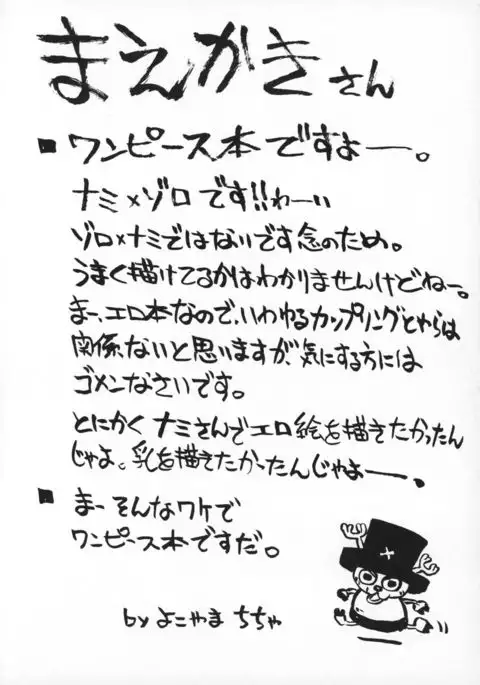 まえかきさん
■ワンピース本ですよー。
ナミ×ゾロです!!わーい
ゾロ×ナミではないです念のため。
うまく描けてるかはわかりませんけどねー。
まー、エロ本なので、いわゆるカップリングとやらは
関係ないと思いますが、気にする方には
ゴメンなさいです。
とにかくナミさんでエロ絵を描きたかったん
じゃよ。乳を描きたかったんじゃよー。
■まーそんなワケで
ワンピース本ですだ。
by よこやま ちちゃ